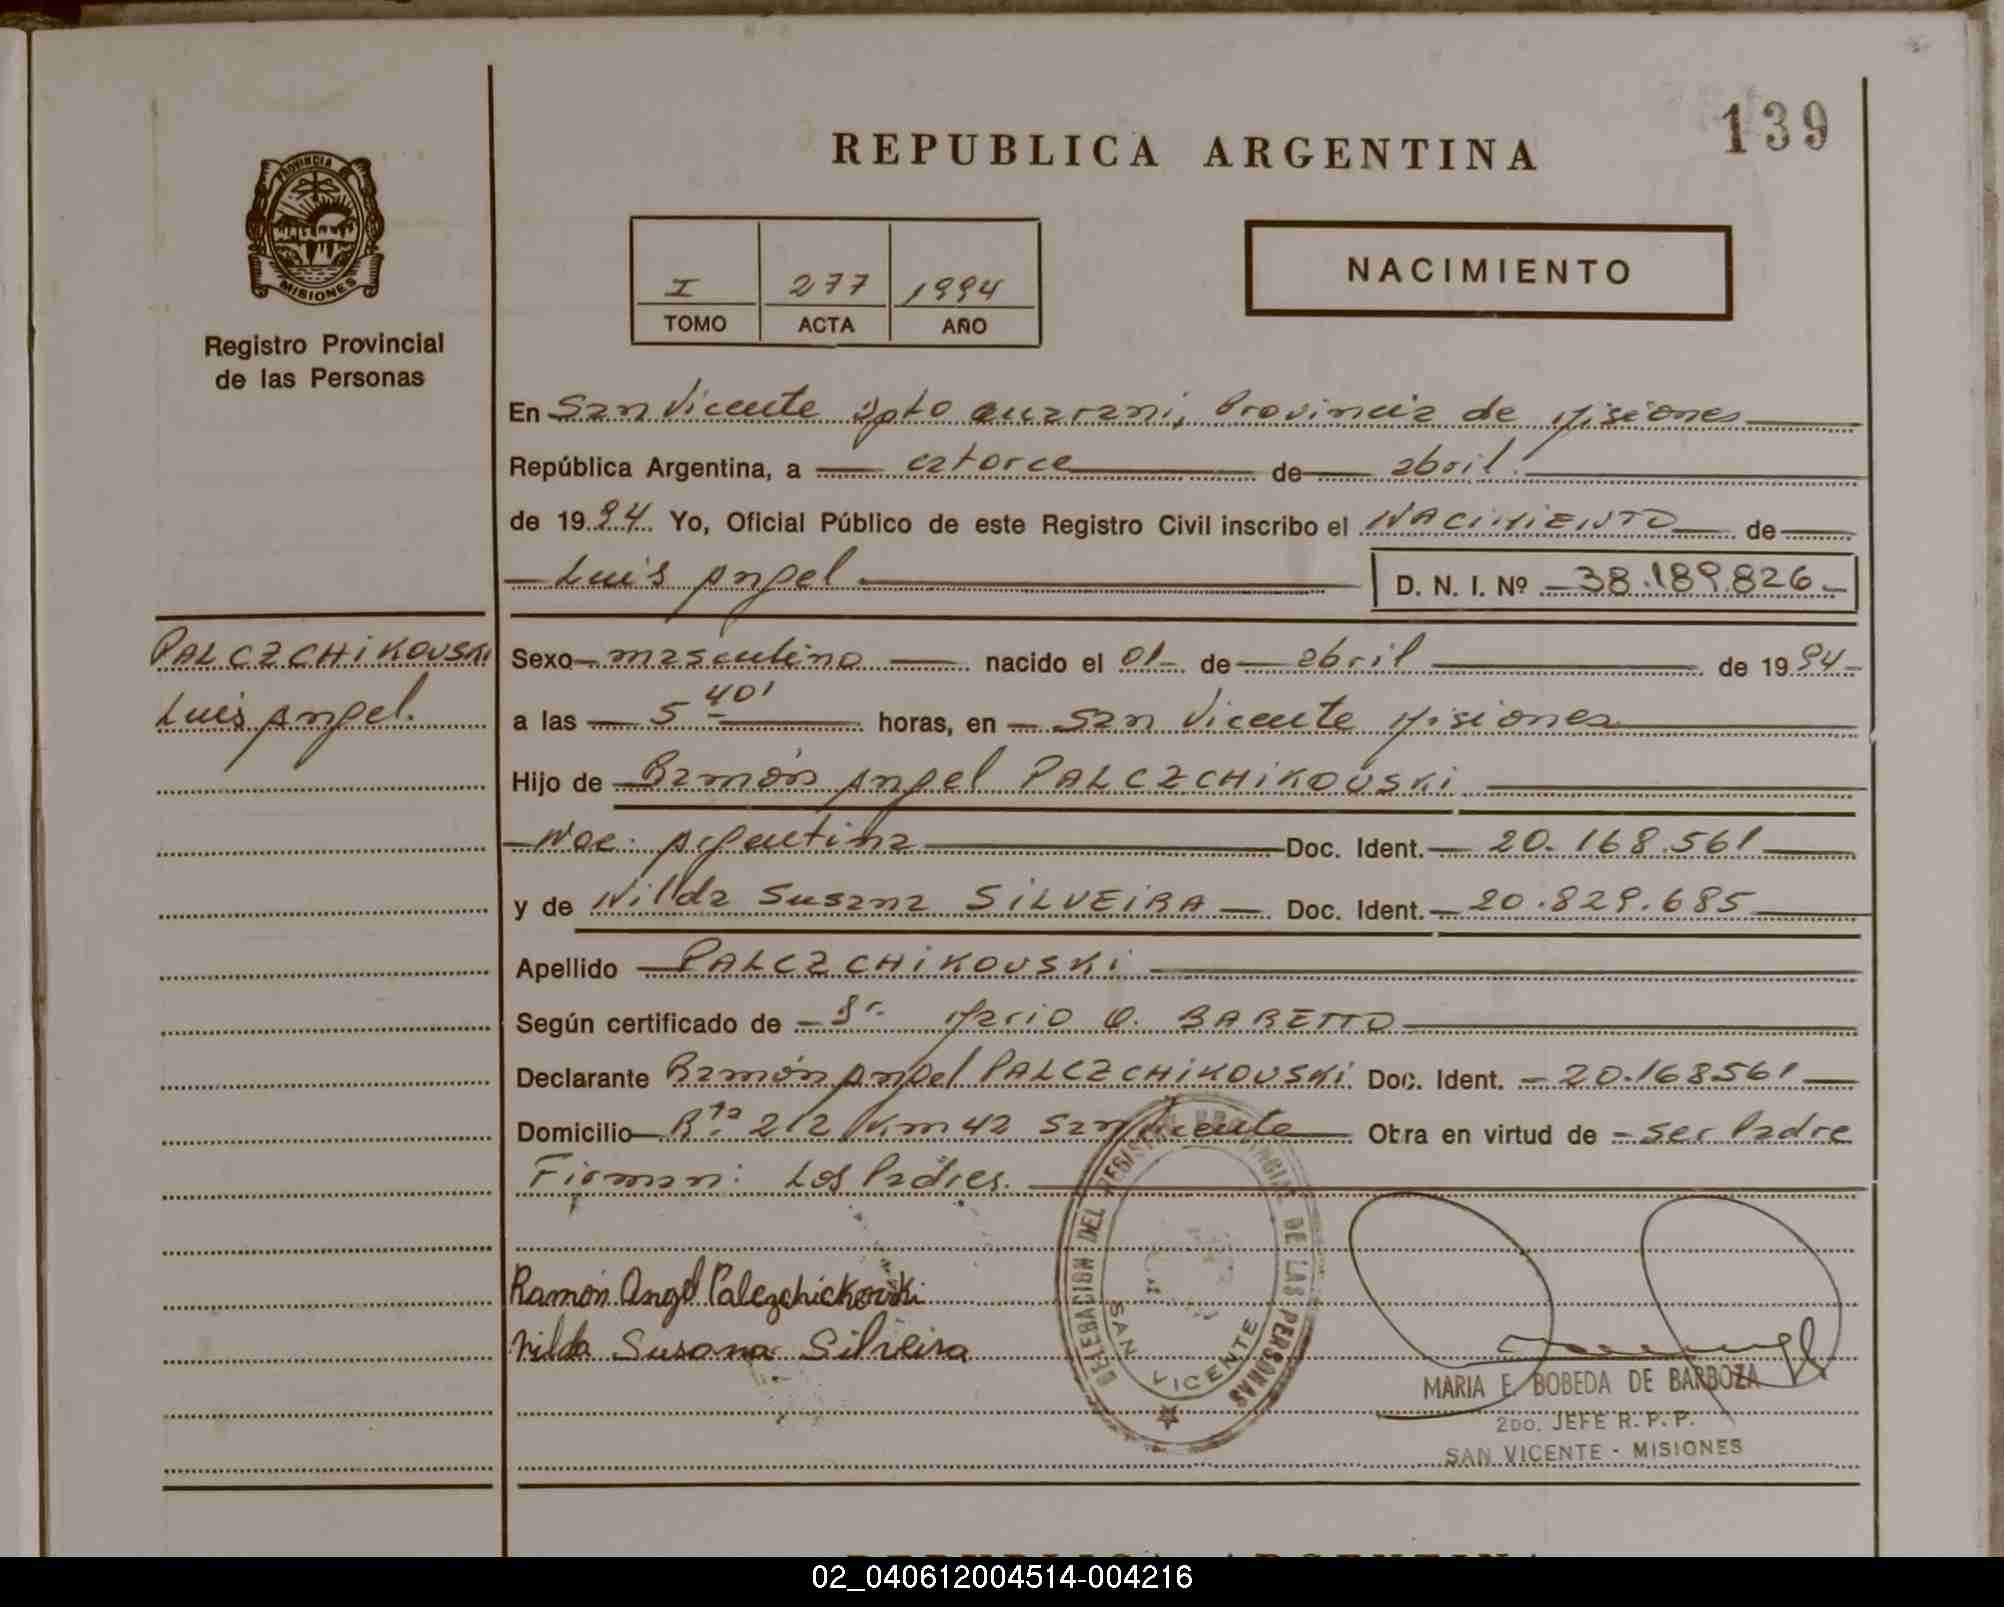 139
REPUBLICA ARGENTINA
PROVINCIA
MISIONES
Registro Provincial
de las Personas
I 277 1994
TOMO ACTA AÑO
NACIMIENTO
En San Vicente Dpto Guarani, Provincia de Misiones
República Argentina, a catorce de abril.
de 1994 Yo, Oficial Público de este Registro Civil inscribo el NACIMIENTO de
Luis Angel D. N. I. Nº 38.189.826
PALCZCHIKOVSKI
Luis Angel.
Sexo masculino nacido el 01 de abril de 1994
a las 5 40' horas, en San Vicente Misiones
Hijo de Ramón Angel PALCZCHIKOVSKI
Nac. Argentina Doc. Ident. 20.168.561
y de Nilda Susana SILVEIRA Doc. Ident. 20.829.685
Apellido PALCZCHIKOVSKI
Según certificado de Dr. Mario O. BARETTO
Declarante Ramón Angel PALCZCHIKOVSKI Doc. Ident. 20.168561
Domicilio Rta 212 Km 42 San Vicente Obra en virtud de ser Padre
Firman: Los Padres.
Ramón Angel Palczchickovski
Nilda Susana Silveira
DELEGACION DEL REGISTRO PROVINCIAL DE LAS PERSONAS
SAN VICENTE
MARIA E. BOBEDA DE BARBOZA
2DO. JEFE R. P. P.
SAN VICENTE - MISIONES
02_040612004514-004216